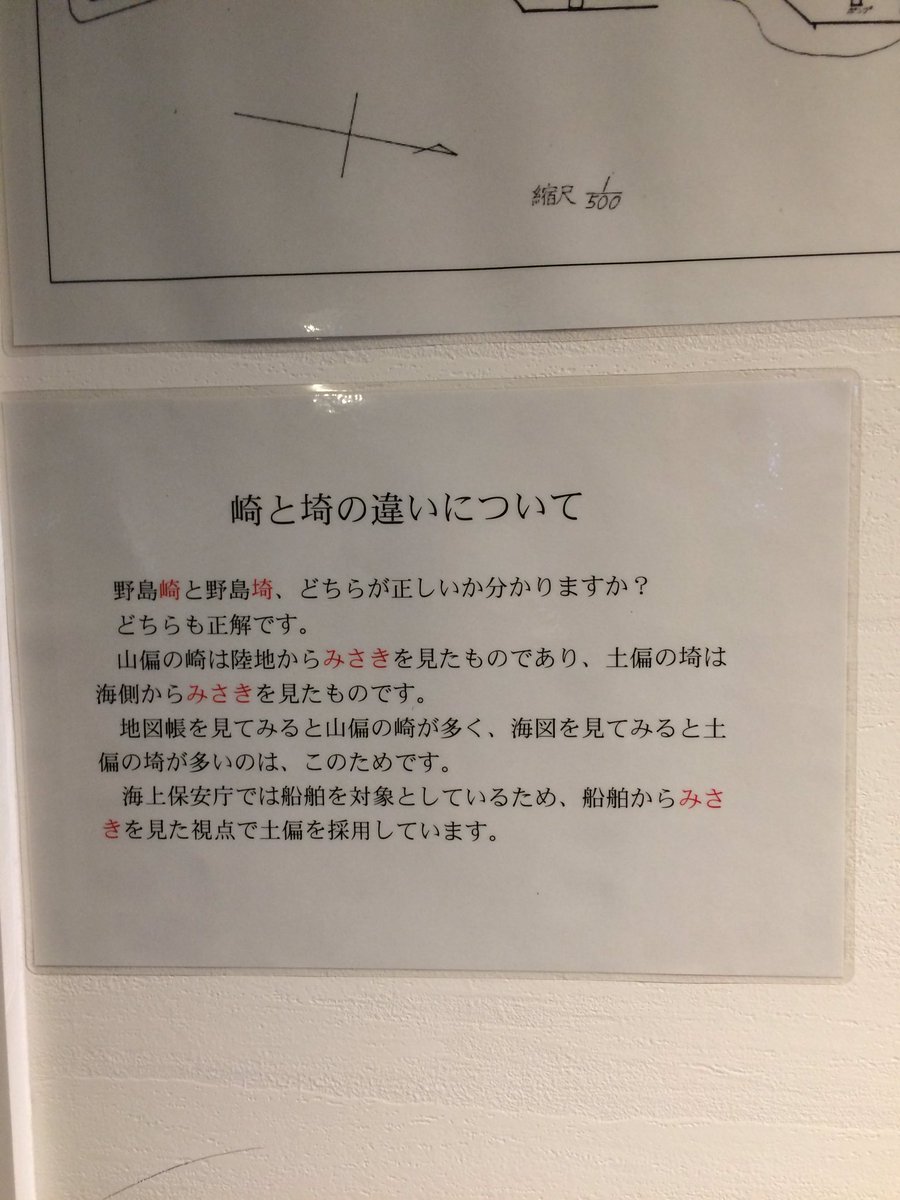 縮尺 1/500
崎と埼の違いについて
野島崎と野島埼、どちらが正しいか分かりますか？
どちらも正解です。
山偏の崎は陸地からみさきを見たものであり、土偏の埼は
海側からみさきを見たものです。
地図帳を見てみると山偏の崎が多く、海図を見てみると土
偏の埼が多いのは、このためです。
海上保安庁では船舶を対象としているため、船舶からみさ
きを見た視点で土偏を採用しています。